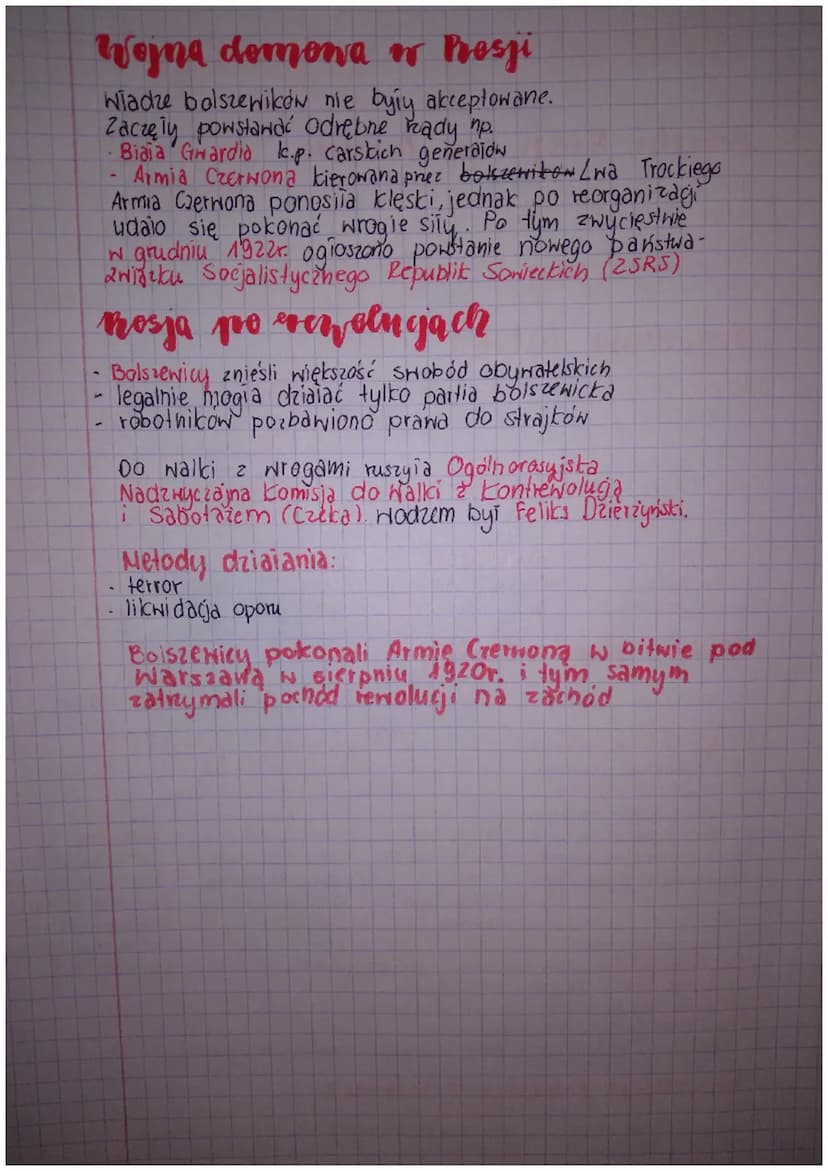 Wojna domowa w Rosji
Władze bolszewików nie były akceptowane.
Zaczęły powstawać odrębne rządy np.
- Biała Gwardia k.p. carskich generałów
- Armia Czerwona kierowana przez bolszewików Lwa Trockiego
Armia Czerwona ponosiła klęski, jednak po reorganizacji
udało się pokonać wrogie siły. Po tym zwycięstwie
w grudniu 1922r. ogłoszono powstanie nowego państwa-
Związku Socjalistycznego Republik Sowieckich (ZSRS)
Rosja po rewolucjach
- Bolszewicy znieśli większość swobód obywatelskich
- legalnie mogła działać tylko partia bolszewicka
- robotników pozbawiono prawa do strajków
Do walki z wrogami ruszyła Ogólnorosyjska
Nadzwyczajna Komisja do Walki z Kontrewolucją
i Sabotażem (Czeka). Wodzem był Feliks Dzierżyński.
Metody działania:
- terror
- likwidacja oporu
Bolszewicy pokonali Armię Czerwoną w bitwie pod
Warszawą w sierpniu 1920r. i tym samym
zatrzymali pochód rewolucji na zachód